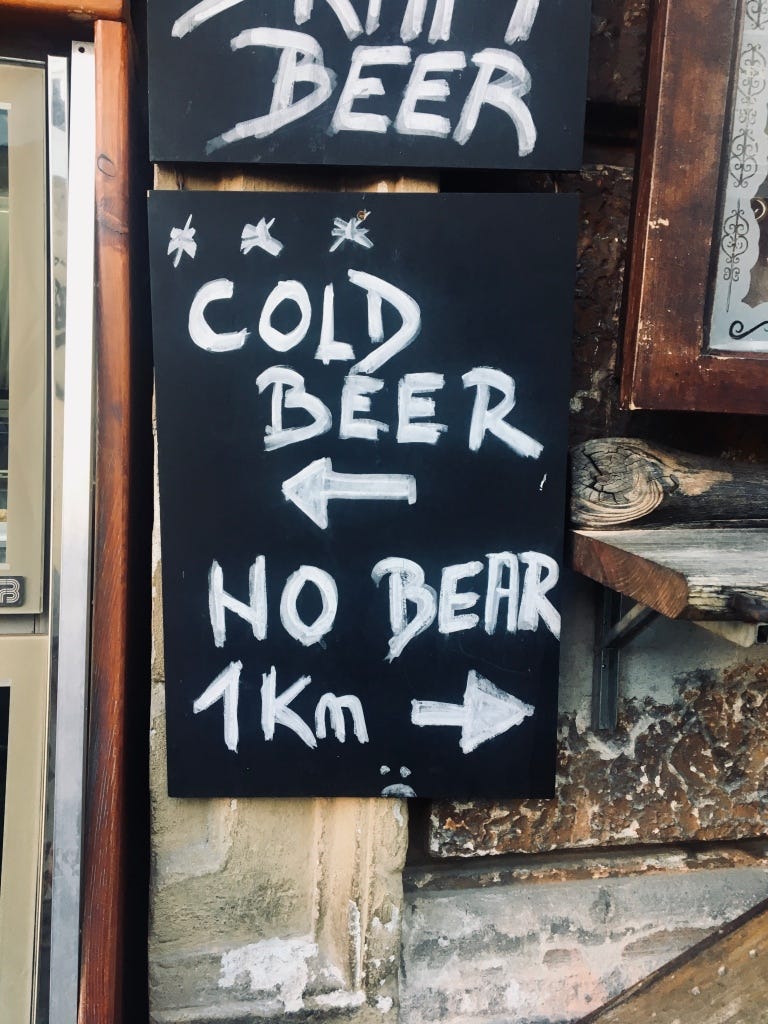 BEER
COLD
BEER
NO BEAR
1Km